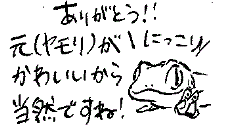 ありがとう!!
元(ヤモリ)が\にっこり/
かわいいから
当然ですね!